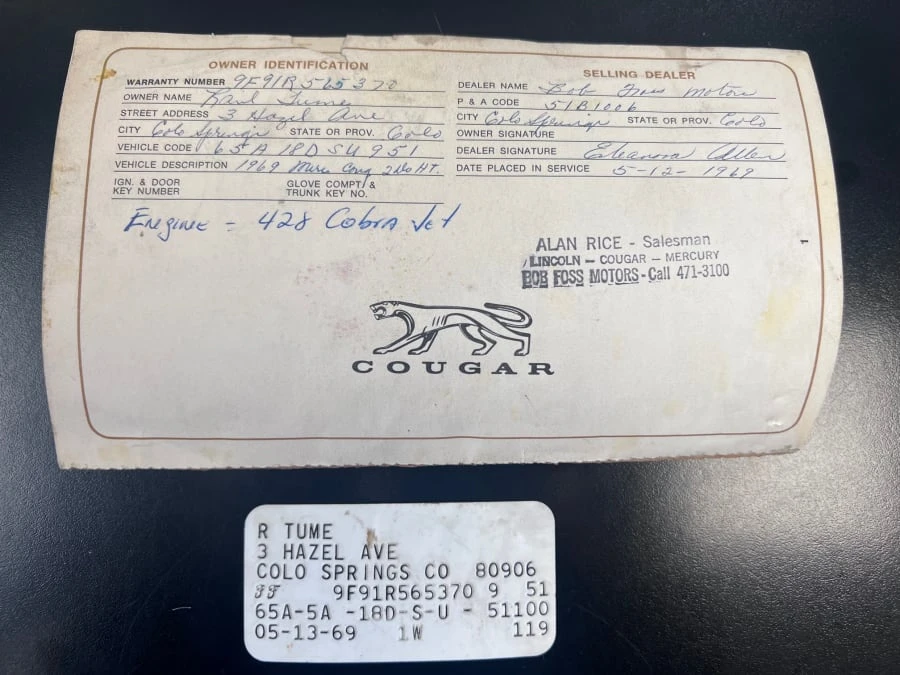 OWNER IDENTIFICATION
WARRANTY NUMBER 9F91R565370
OWNER NAME Tume
STREET ADDRESS 3 Hazel Ave
CITY Colo Springs STATE OR PROV. Colo
VEHICLE CODE 65A 18D SU 951
VEHICLE DESCRIPTION 1969 Merc Coug 2 Do HT.
IGN. & DOOR
KEY NUMBER
GLOVE COMPT. &
TRUNK KEY NO.
SELLING DEALER
DEALER NAME Bob Foss Motors
P & A CODE 51B1006
CITY Colo Springs STATE OR PROV. Colo
OWNER SIGNATURE
DEALER SIGNATURE Eleanora
DATE PLACED IN SERVICE 5-12-1969
Enginne = 428 Cobra Jet
ALAN RICE - Salesman
LINCOLN - COUGAR - MERCURY
BOB FOSS MOTORS - Call 471-3100
COUGAR
R TUME
3 HAZEL AVE
COLO SPRINGS CO 80906
9F91R565370 9 51
65A-5A -18D-S-U - 51100
05-13-69 1W 119